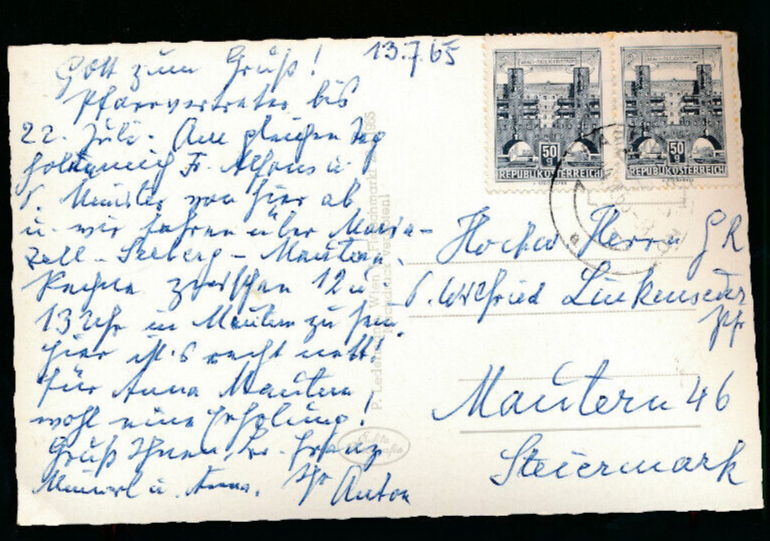 13.7.65
Gott zum Gruß!
Pfarrvertreter bis
22. Juli. Am gleichen Tag
holen mich Fr. Alfons u.
P. Minister von hier ab
u. wir fahren über Maria-
zell - Seeberg - Mautern.
Rechne zwischen 12 u.
13 Uhr in Mautern zu sein.
hier ist's recht nett!
für Anna Mautern
wohl eine Erholung!
Gruß Ihnen, Br. Franz
u. Anna. Ihr Anton
50 g
REPUBLIK ÖSTERREICH
50 g
REPUBLIK ÖSTERREICH
Hochw. Herrn GR
P. Wilfried Linkenseder
Pfr
Mautern 46
Steiermark
P. Lederer Wien Fleischmarkt 1965